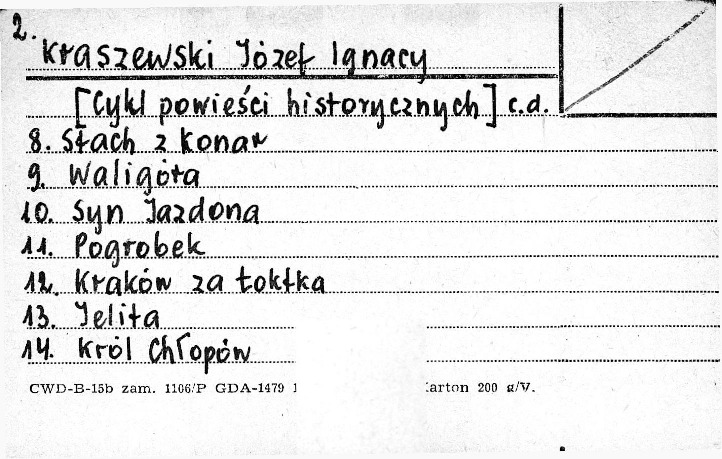 2.
Kraszewski Józef Ignacy
[Cykl powieści historycznych] c.d.
8. Stach z Konar
9. Waligóra
10. Syn Jazdona
11. Pogrobek
12. Kraków za Łoktka
13. Jelita
14. Król Chłopów
CWD-B-15b zam. 1106/P GDA-1479 1 arton 200 g/V.